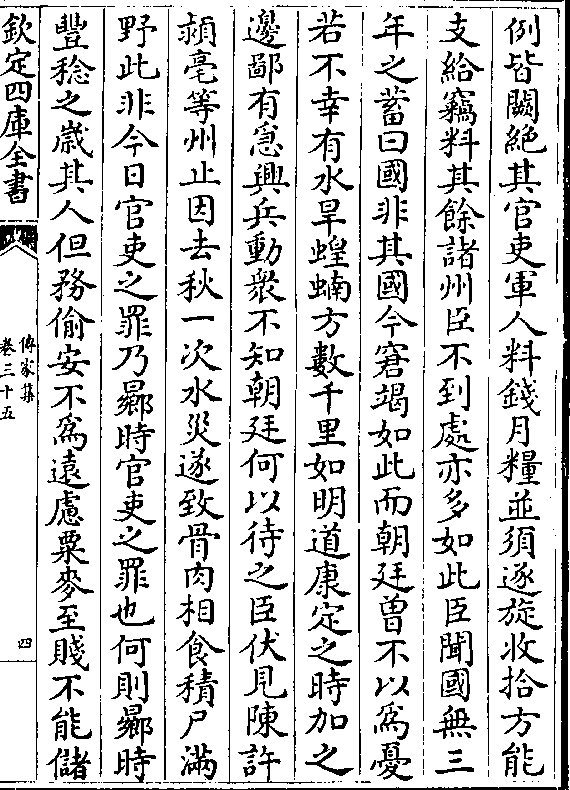 例皆闕絶其官吏軍人料錢月糧並須逐旋收拾方能
支給竊料其餘諸州臣不到處亦多如此臣聞國無三
年之蓄曰國非其國今窘竭如此而朝廷曽不以爲憂
若不幸有水旱蝗蝻方數千里如明道康定之時加之
邊鄙有急興兵動衆不知朝廷何以待之臣伏見陳許
潁亳等州止因去秋一次水災遂致骨肉相食積尸滿
野此非今日官吏之罪乃曏時官吏之罪也何則曏時
豐稔之歲其人但務偷安不爲遠慮粟麥至賤不能儲
欽定四庫全書
傳家集
卷三十五
四